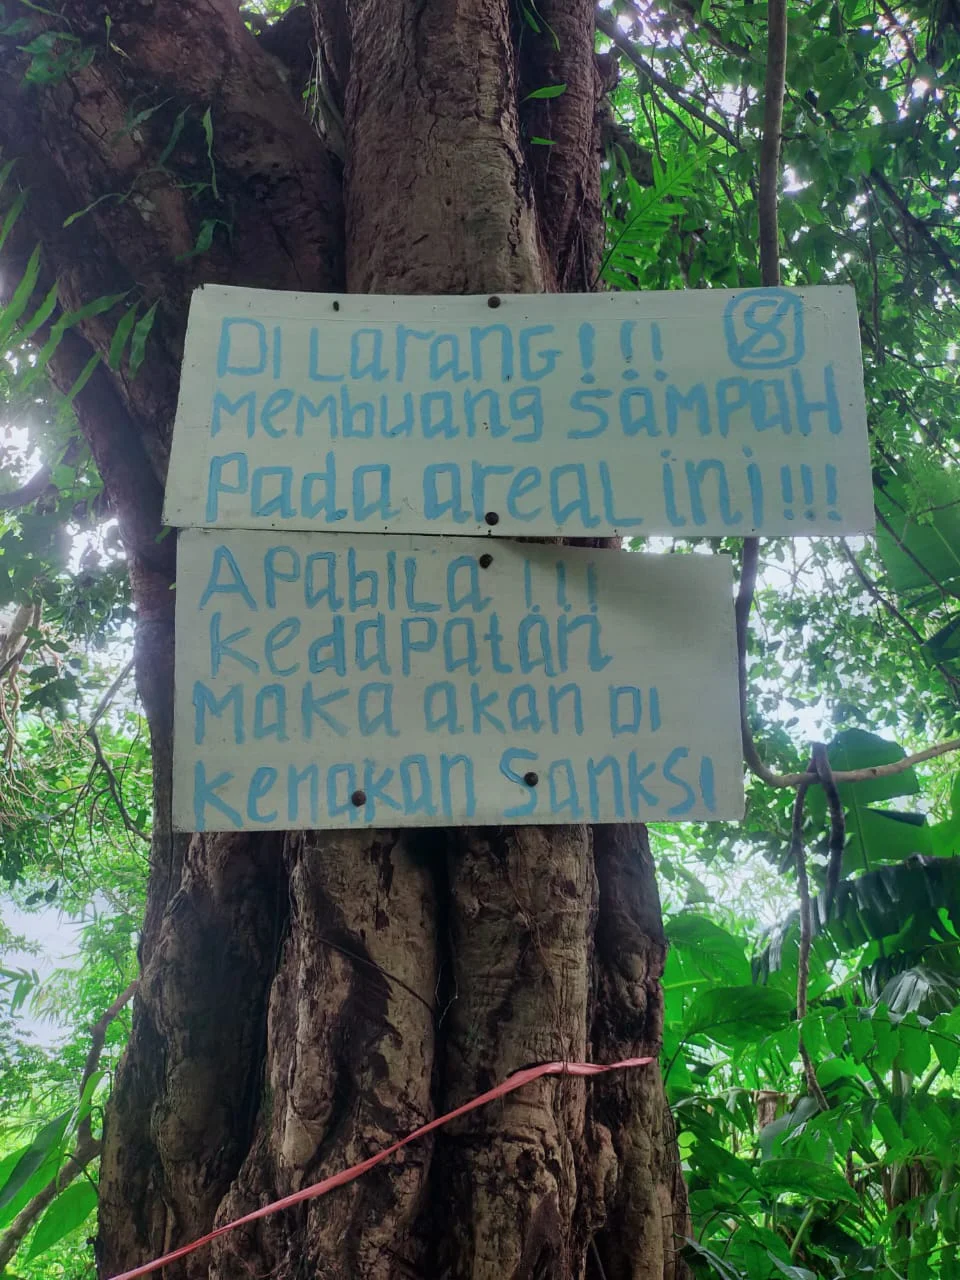 DILaranG!!! 8
membuang SamPaH
Pada areaL ini!!!
APabiLa !!!
kedaPatan
Maka akan Di
kenakan SankSi